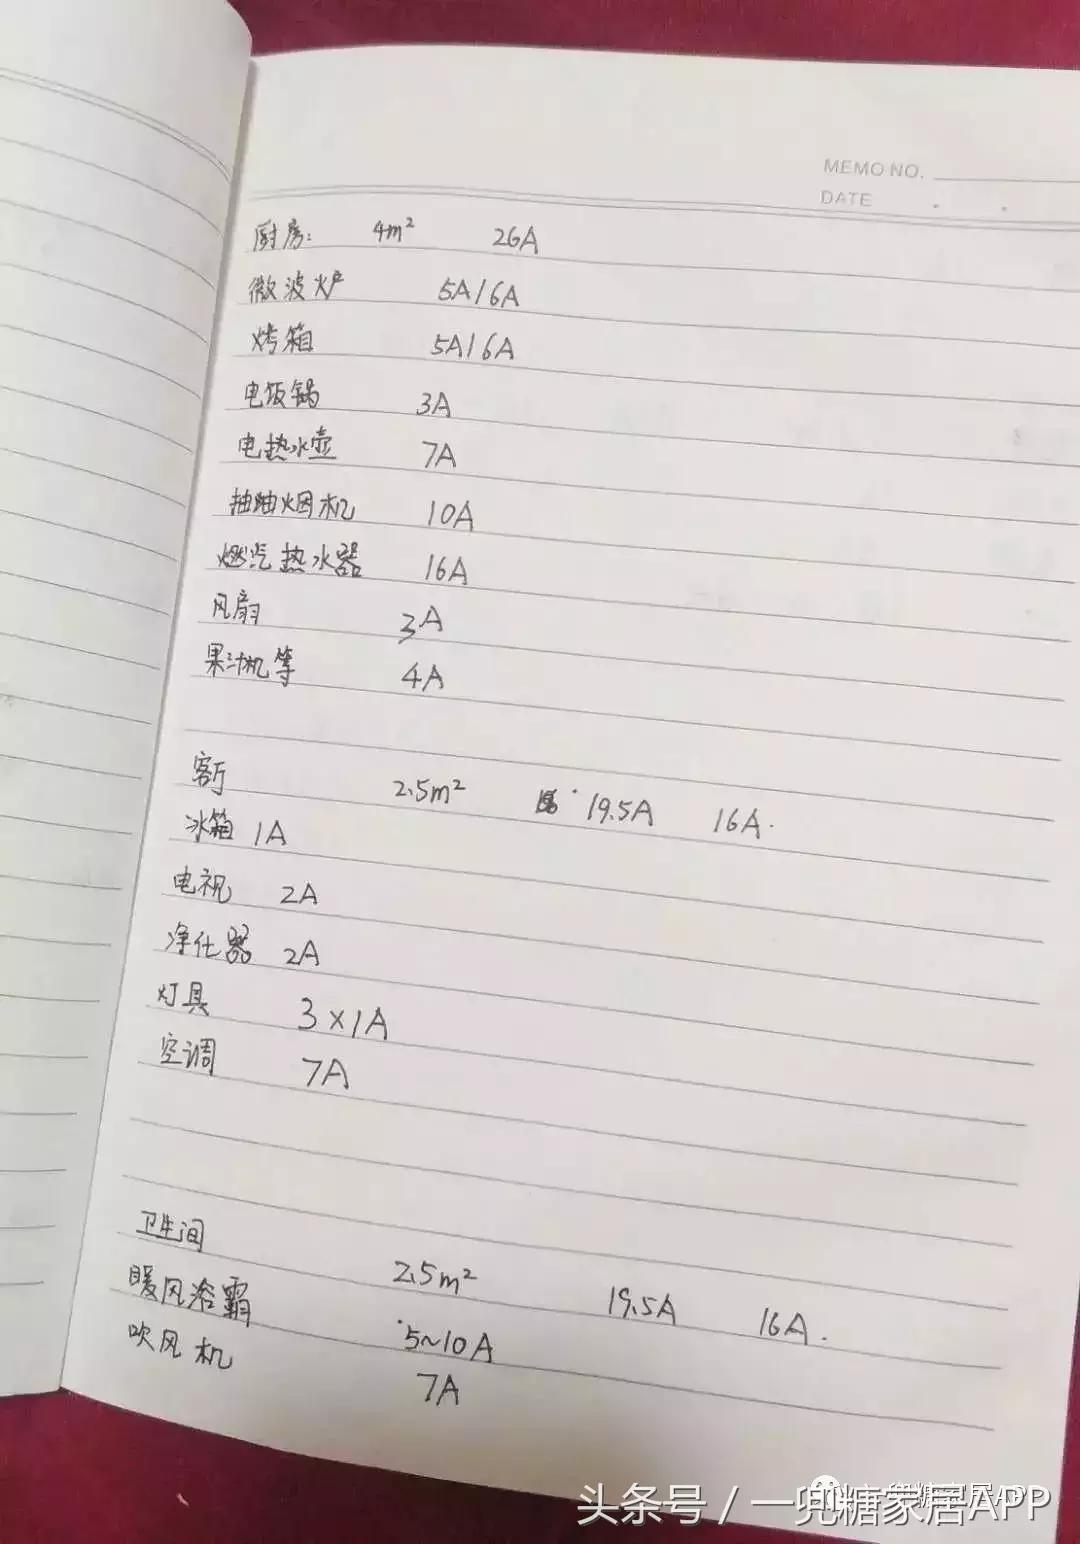 MEMO NO.
DATE
厨房: 4m² 26A
微波炉 5A/6A
烤箱 5A/6A
电饭锅 3A
电热水壶 7A
抽油烟机 10A
燃汽热水器 16A
风扇 3A
果汁机等 4A
客厅 2.5m² 19.5A 16A.
冰箱 1A
电视 2A
净化器 2A
灯具 3×1A
空调 7A
卫生间 2.5m² 19.5A 16A.
暖风浴霸 5~10A
吹风机 7A
头条号 / 一兜糖家居APP